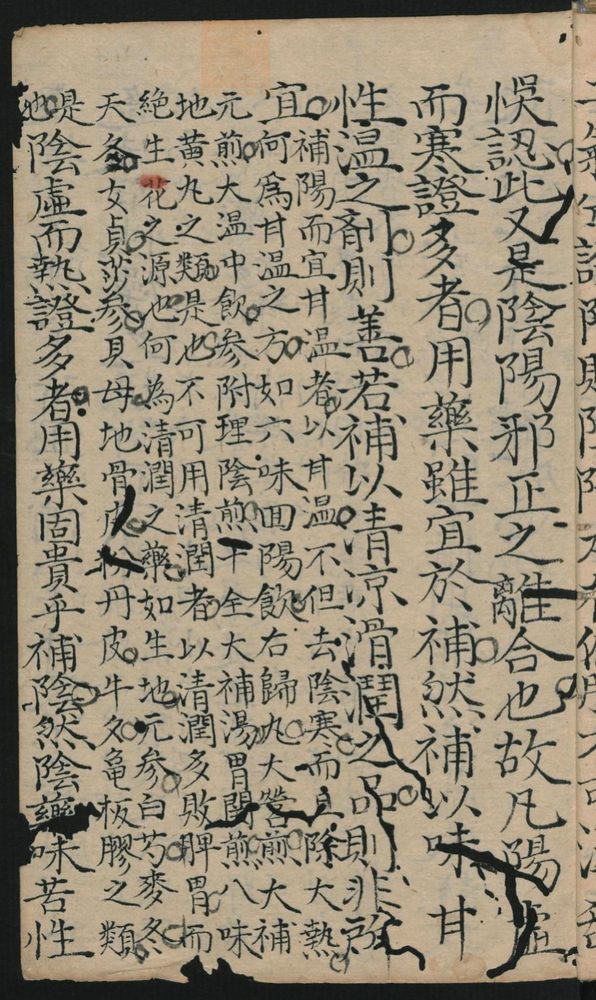 悞認此又是陰陽邪正之離合也故凡陽虛
而寒證多者用藥雖宜於補然補以味甘
性温之劑則善若補以清凉滑潤之品則非所
宜補陽而宜甘温者以甘温不但去陰寒而且除大熱
何為甘温之方如六味回陽飲右歸丸大營煎大補
元煎大温中飲參附理陰煎十全大補湯胃關煎八味
地黄丸之類是也不可用清潤者以清潤多敗脾胃而
絶生化之源也何為清潤之藥如生地元參白芍麥冬
天冬女貞莎參貝母地骨皮丹皮牛夕龜板膠之類
是也陰虛而熱證多者用藥固貴乎補陰然陰藥味苦性